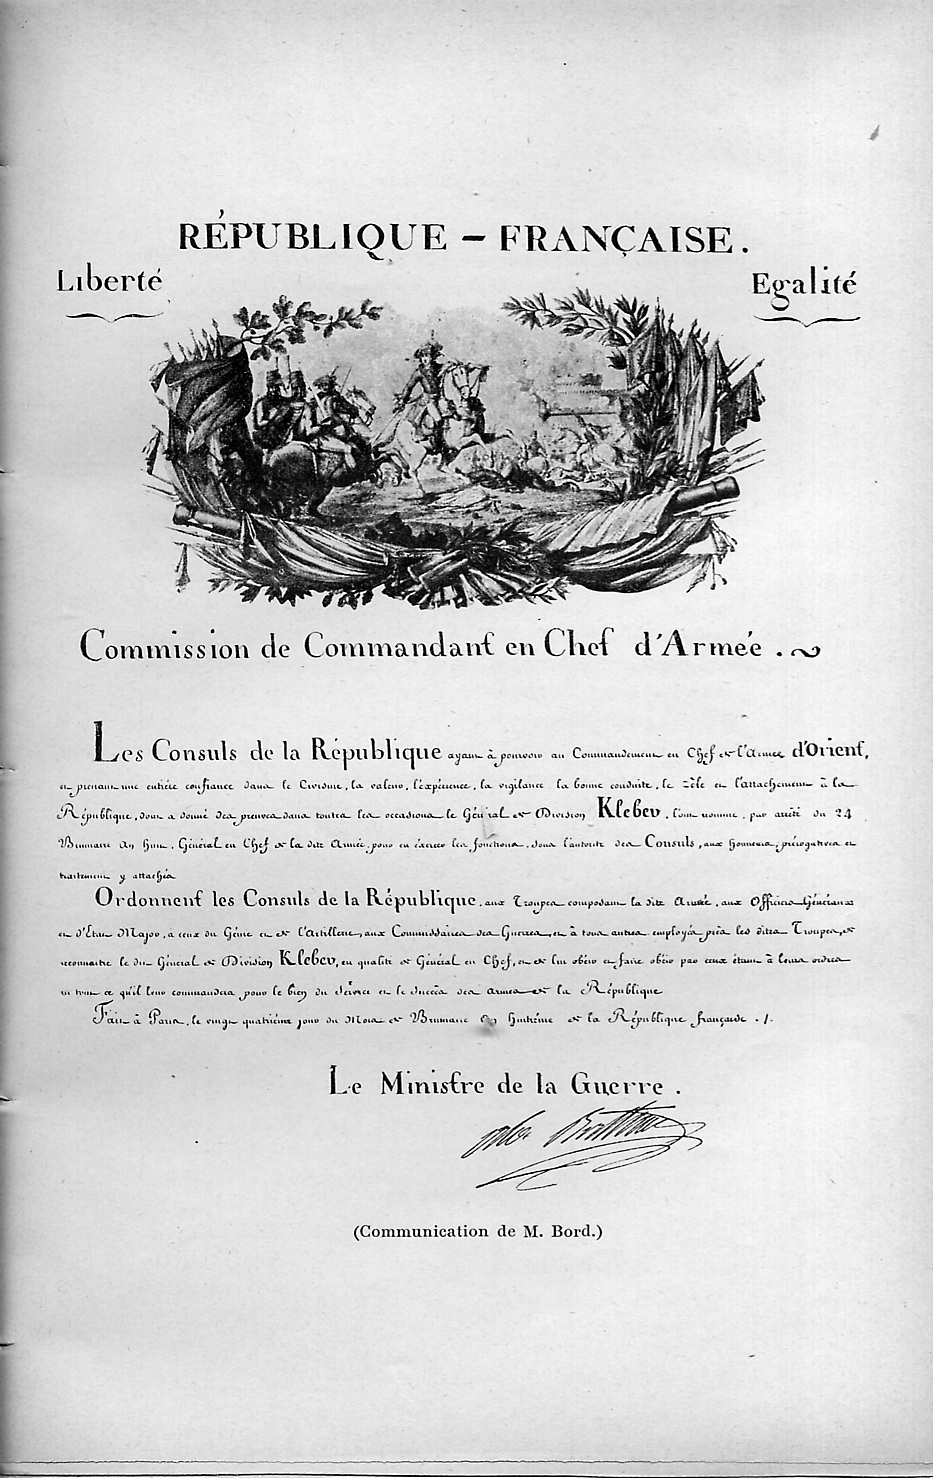 RÉPUBLIQUE – FRANÇAISE.
Liberté
Egalité
Commission de Commandant en Chef d'Armée.
Les Consuls de la République ayant à pourvoir au Commandement en Chef de l'Armée d'Orient,
et prenant une entière confiance dans le Civisme, la valeur, l'expérience, la vigilance la bonne conduite, le zèle et l'attachement à la
République, dont a donné des preuves dans toutes les occasions le Général de Division Kleber, l'ont nommé, par arrêté du 24
Brumaire an huit, Général en Chef de la dite Armée, pour en exercer les fonctions, sous l'autorité des Consuls, aux honneurs, prérogatives et
traitement y attachés
Ordonnent les Consuls de la République, aux Troupes composant la dite Armée, aux Officiers Généraux
et d'Etat Major, a ceux du Génie et de l'Artillerie, aux Commissaires des Guerres, et à tous autres employés près les dites Troupes, de
reconnaitre le dit Général de Division Kleber, en qualité de Général en Chef, et de lui obéir et faire obéir par ceux étant à leurs ordres
en tout ce qu'il leur commandera pour le bien du Service et le Succès des armes de la République
Fait à Paris, le vingt quatrième jour du Mois de Brumaire An huitième de la République française ./.
Le Ministre de la Guerre.
(Communication de M. Bord.)